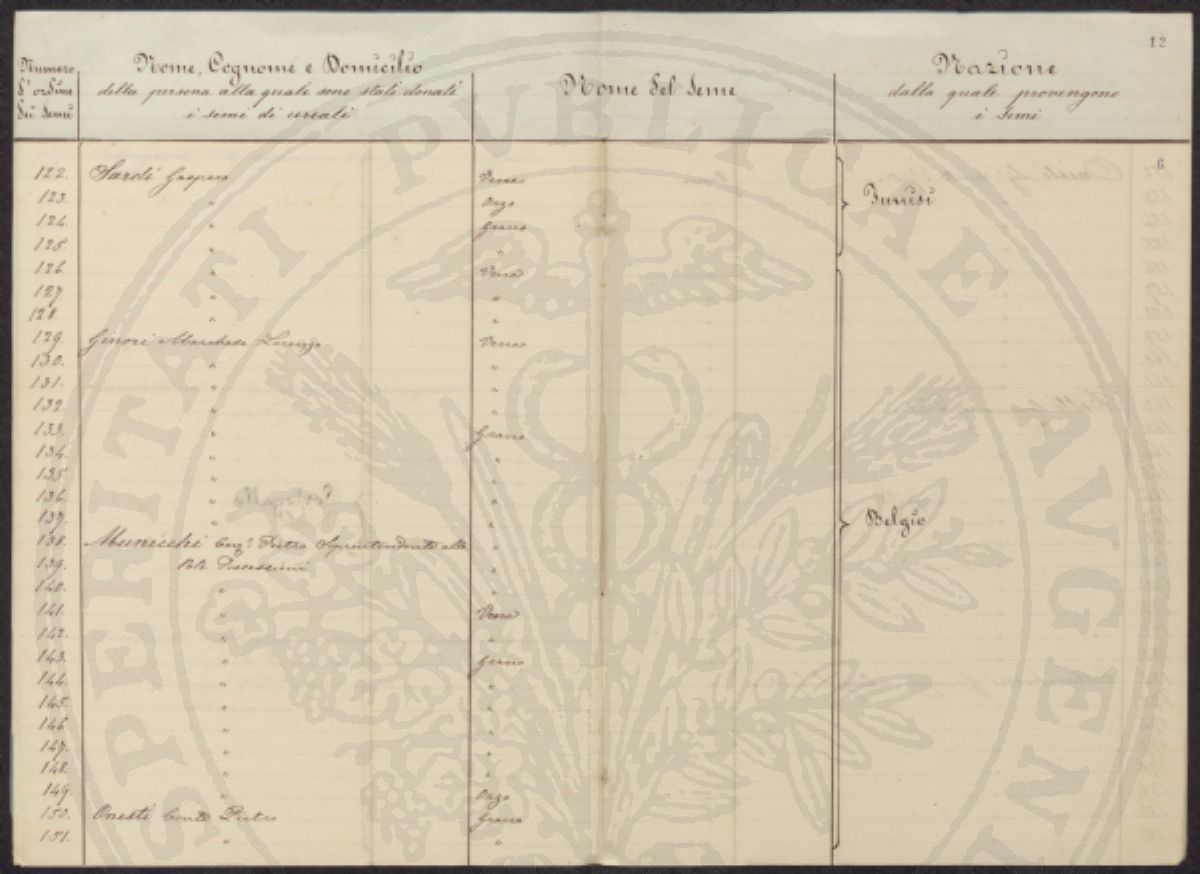 12
Numero d'ordine dei Semi
Nome, Cognome e Domicilio
della persona alla quale sono stati donati
i semi di cereali
Nome del Seme
Nazione
dalla quale provengono
i Semi
6
122. Sardi Gaspero
123. " Orzo Tunisi
124. " Grano
125. " "
126. "
127. " "
128. " "
129. Ginori Marchese Lorenzo
130. " "
131. " "
132. " "
133. " Grano
134. " "
135. " "
136. " "
137. " " Belgio
138. Municchi Cav.e Pietro Soprintendente alle "
139. RR. Possessioni "
140. " "
141. "
142. " "
143. " Grano
144. " "
145. " "
146. " "
147. " "
148. " "
149. " Orzo
150. Onesti Conte Pietro Grano
151. " "
PROSPERITATI PVBLICAE AVGEN